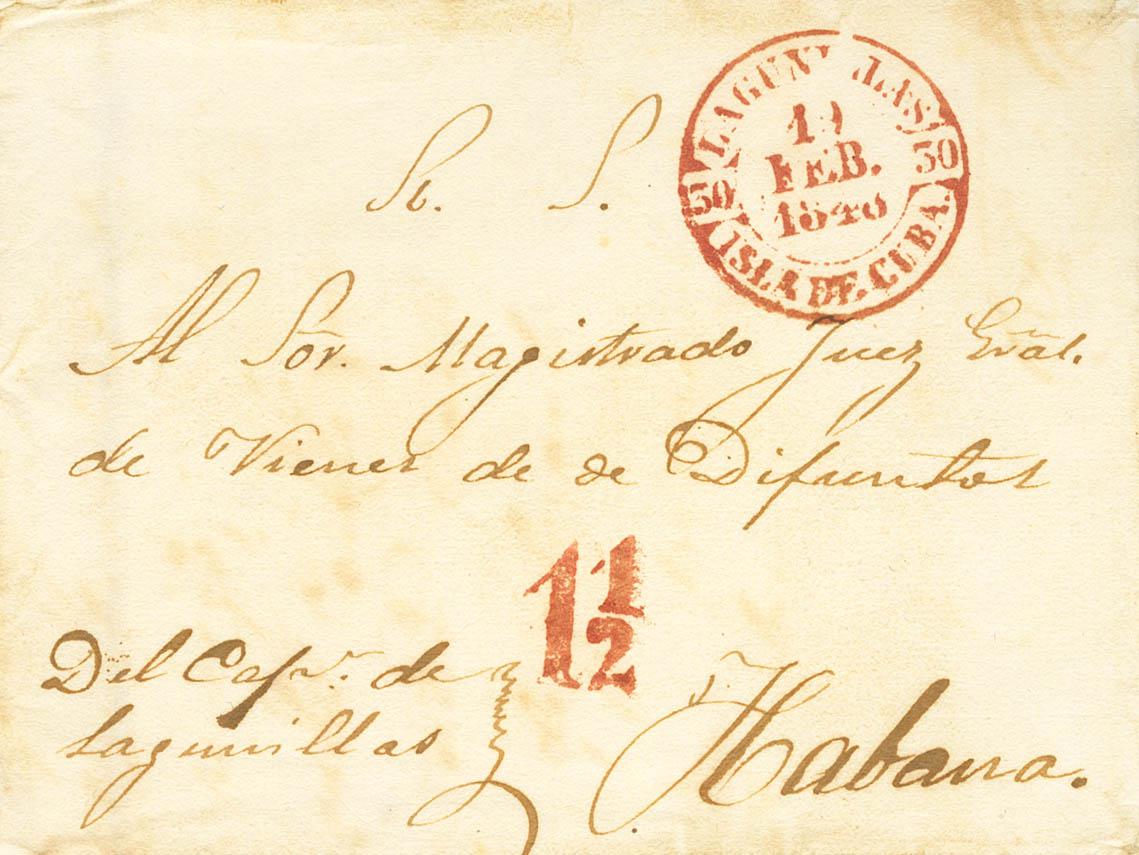 LAGUNILLAS
FEB.
30 30
ISLA DE CUBA.
S. S.
Al Sōr. Magistrado Juez Grāl.
de Vienes de de Difuntos
1 1/2
Del Capn. de
Lagunillas
Habana.